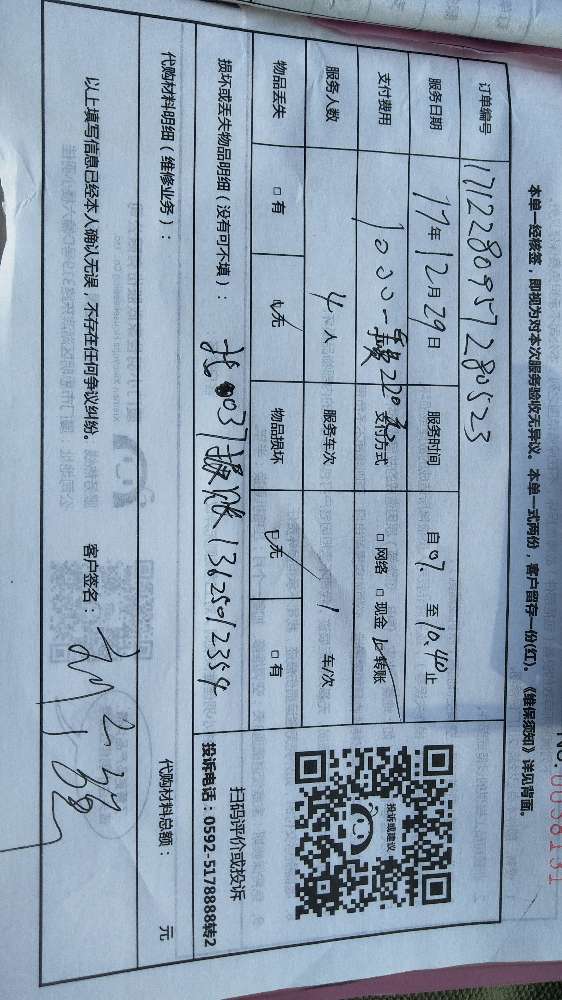 No.0038131
本单一经核签，即视为对本次服务验收无异议。本单一式两份，客户留存一份(红)。《维保须知》详见背面。
订单编号 1712280957280523
服务日期 17年12月29日 服务时间 自 07. 至 10.40 止
支付费用 1000 支付方式 □ 网络 □ 现金 ☑ 转账
服务人数 4 人 服务车次 1 车/次
物品丢失 □ 有 ☑ 无 物品损坏 ☑ 无 □ 有
投诉或建议
损坏或丢失物品明细（没有可不填）： 13125012359
扫码评价或投诉
投诉电话：0592-5178888转2
代购材料明细（维修业务）： 代购材料总额： 元
以上填写信息已经本人确认无误，不存在任何争议纠纷。 客户签名：